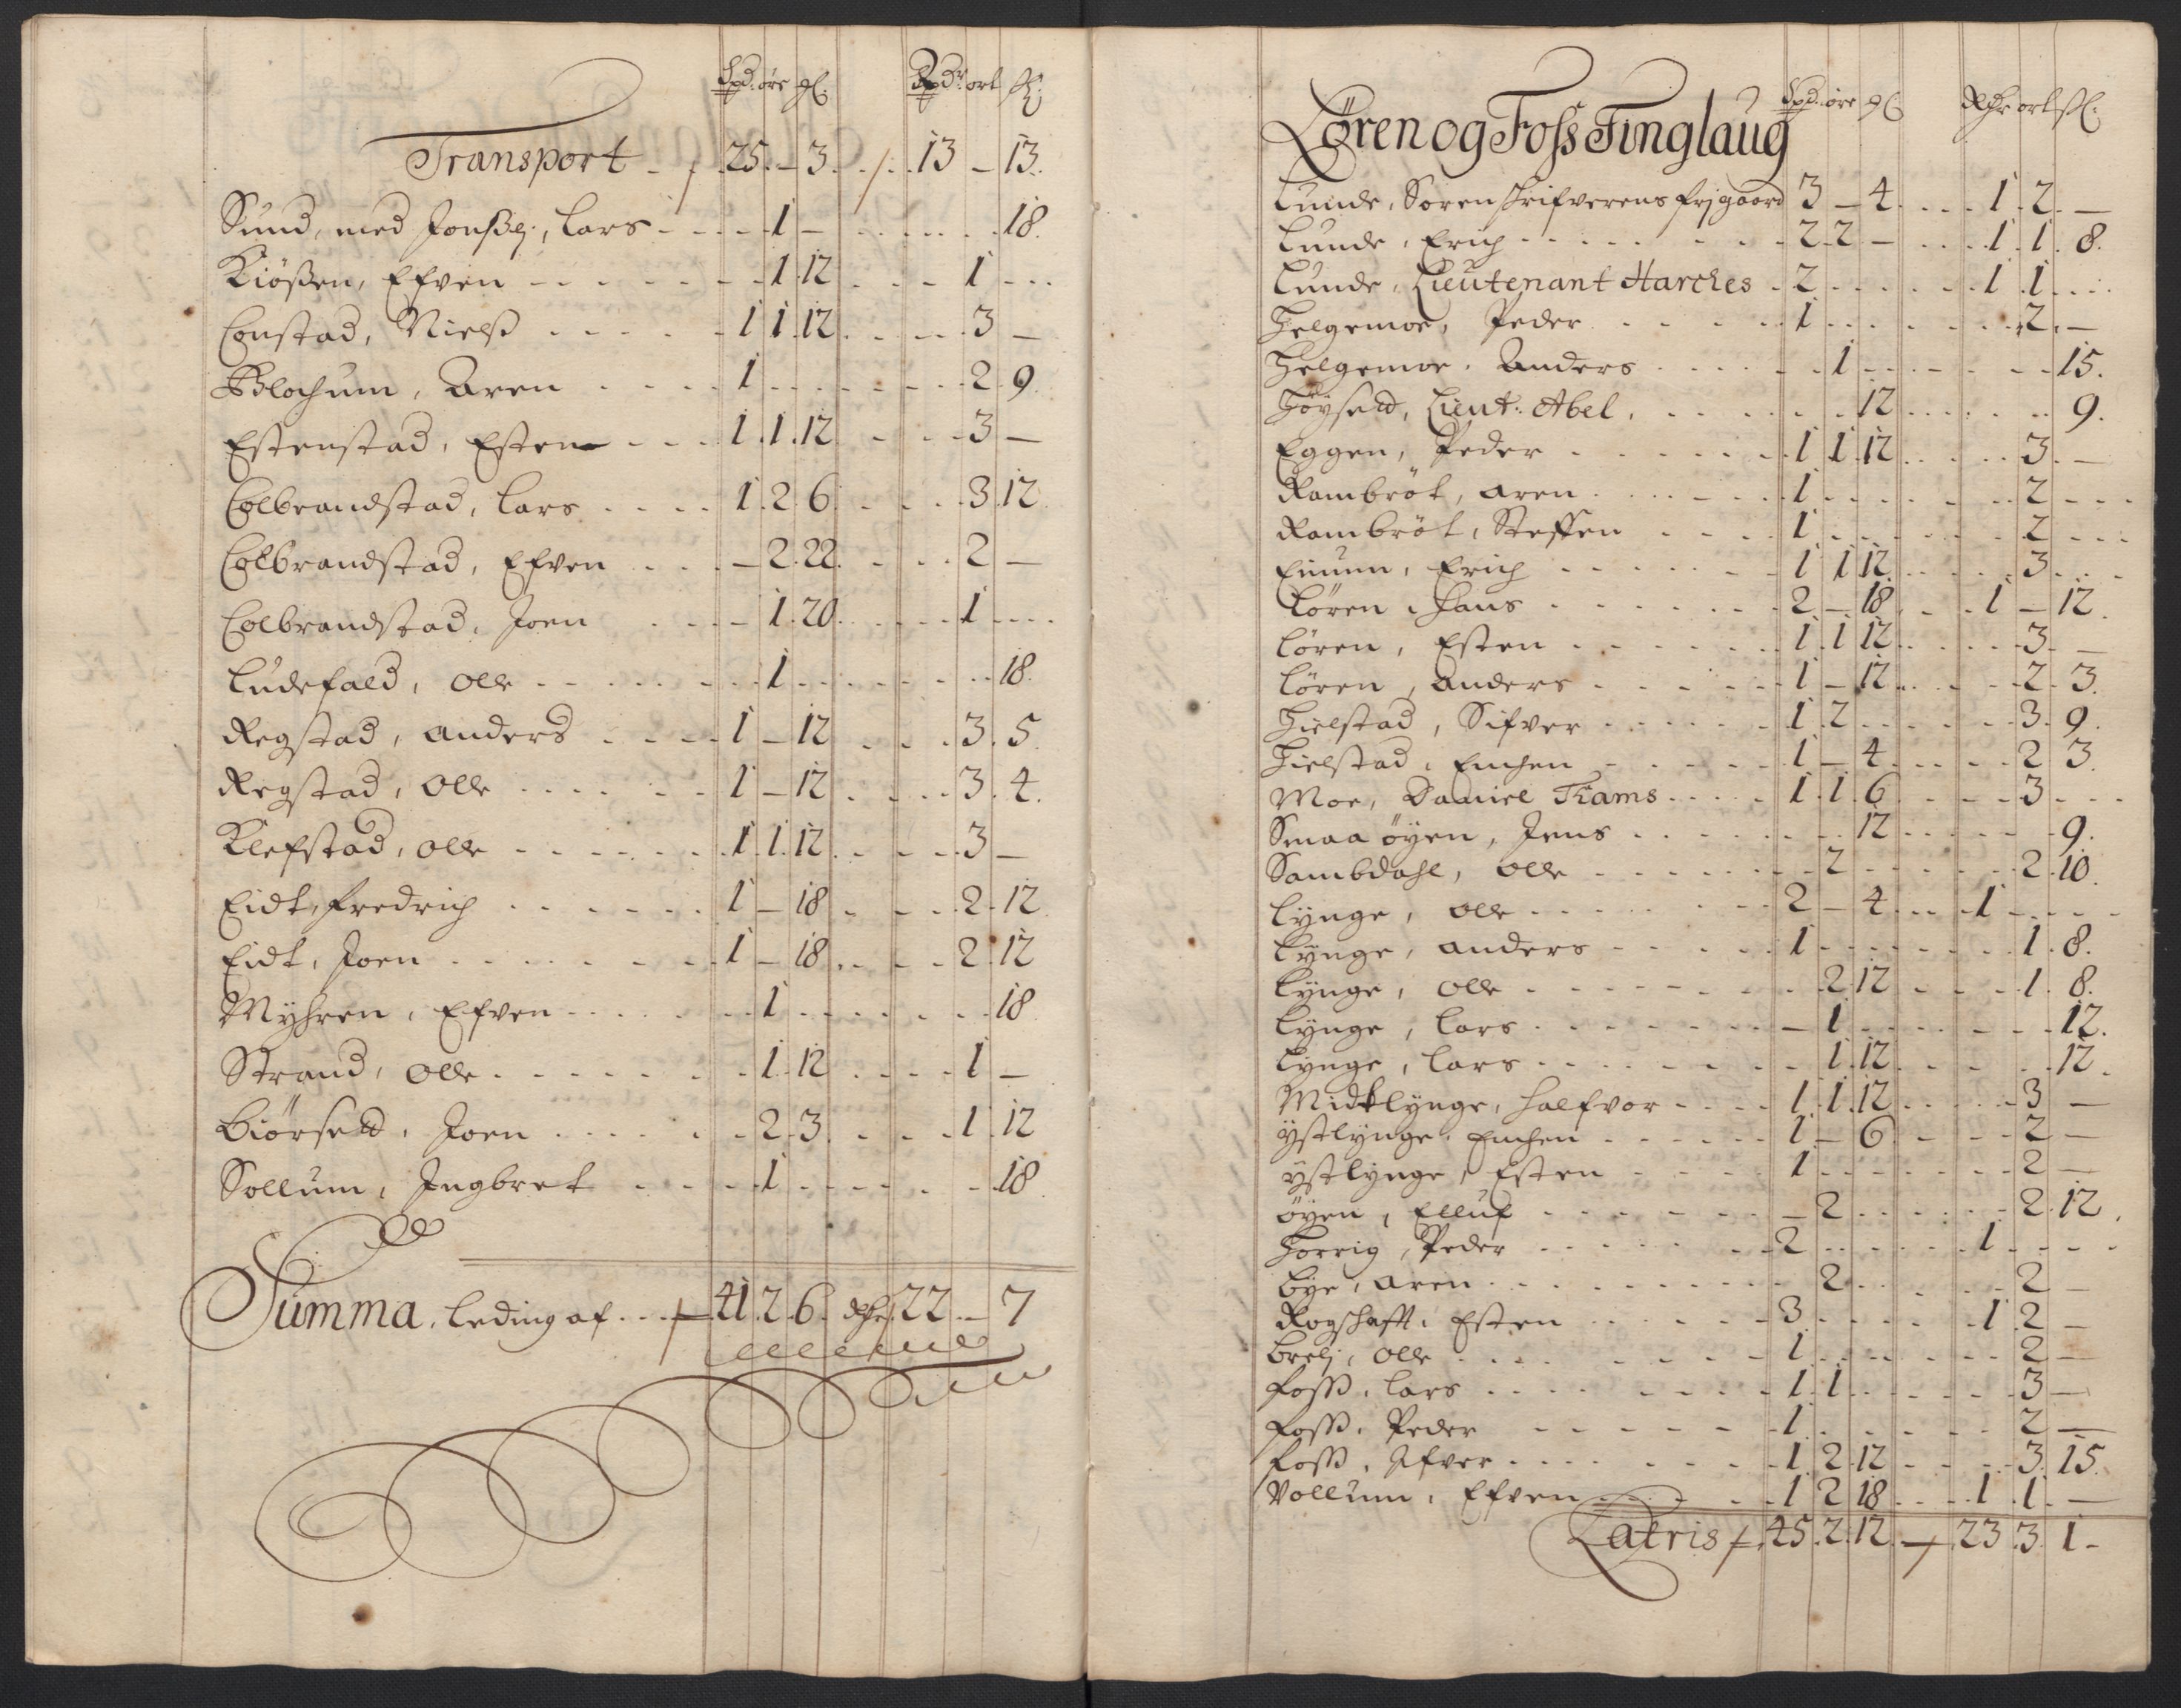 Spd. øre gl. Rdr ort sk.
Transport - 25 - 3 13 - 13
Sund, med , Lars 1 - 18
Kiößen, Efven 1 12 1
Constad, Nielß 1 1 12 3 -
Blochum, Aren 1 2 9
Estenstad, Esten 1 1 12 3 -
Colbrandstad, Lars 1 2 6 3 12
Colbrandstad, Efven - 2 22 2 -
Colbrandstad, Joen - 1 20 1
Ludefald, Olle 1 18
Regstad, Anders 1 - 12 3 5
Regstad, Olle 1 - 12 3 4
Klefstad, Olle 1 1 12 3 -
Eidt, Fredrich 1 - 18 2 12
Eidt, Joen 1 - 18 2 12
Myhren, Efven 1 18
Strand, Olle 1 12 1 -
Biörseld, Joen 2 3 1 12
Sollum, Ingbret 1 18
Summa, Leding af 41 2 6 Rdr 22 - 7
Spd. øre gl Rdr ort sk.
Løren og Foss Tinglaug
Lunde, Sorenskrifverens frj gaard 3 - 4 1 2 -
Lunde, Erich 2 2 - 1 1 8
Lunde, Lieutenant Harches 2 1 1
Helgemoe, Peder 1 2 -
Helgemoe, Anders 1 15
Höyseld, Lieut: Abel 12 9
Eggen, Peder 1 1 12 3 -
Rambröt, Aren 1 2
Rambröt, Steffen 1 2
Einum, Erich 1 1 12 3
Lören, Hans 2 - 18 1 - 12
Lören, Esten 1 1 12 3 -
Lören, Anders 1 - 12 2 3
Hielstad, Sifver 1 2 3 9
Hielstad, Enchen 1 - 4 2 3
Moe, Daniel Tiams 1 1 6 3
Smaa öyen, Jens 12 9
Sambdahl, Olle 2 2 10
Lynge, Olle 2 - 4 1
Lynge, Anders 1 1 8
Lynge, Olle 2 12 1 8
Lynge, Lars - 1 12
Lynge, Lars 1 12 12
Midtlynge, Halfvor 1 1 12 3 -
ystlynge, Enchen 1 - 6 2 -
ystlynge, Esten 1 2 -
öyen, Elluf - 2 2 12
Horrig, Peder 2 1
Bye, Aren 2 2 -
Rogshafft, Esten 3 1 2 -
Brelj, Olle 1 2 -
Foss, Lars 1 1 3 -
Foss, Peder 1 2 -
Foss, Ifver 1 2 12 3 15
Vollum, Efven 1 2 18 1 1 -
Latris 45 2 12 23 3 1 -